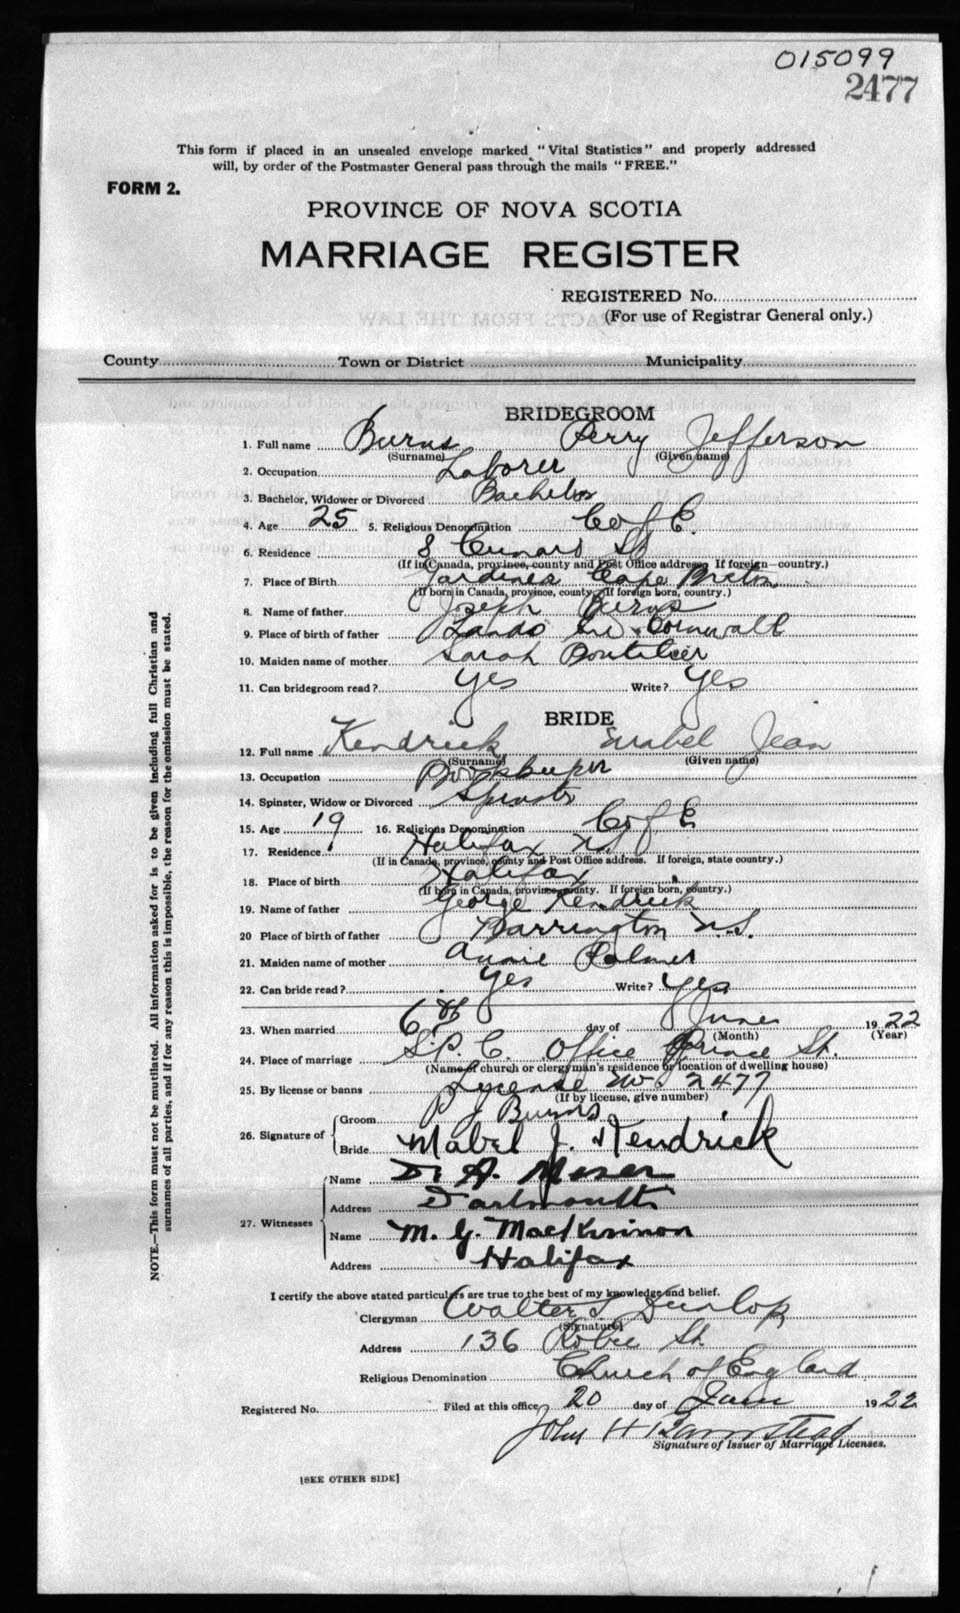 015099
2477
This form if placed in an unsealed envelope marked "Vital Statistics" and properly addressed
will, by order of the Postmaster General pass through the mails "FREE."
FORM 2.
PROVINCE OF NOVA SCOTIA
MARRIAGE REGISTER
REGISTERED No.
(For use of Registrar General only.)
County Town or District Municipality
BRIDEGROOM
1. Full name Burns Perry Jefferson
(Surname) (Given name)
2. Occupation Laborer
3. Bachelor, Widower or Divorced Bachelor
4. Age 25 5. Religious Denomination C of E.
6. Residence 8 Cunard St
(If in Canada, province, county and Post Office address. If foreign—country.)
7. Place of Birth Jardines Cape Breton
(If born in Canada, province, county. If foreign born, country.)
8. Name of father Joseph Burns
9. Place of birth of father Lands Cornwall
10. Maiden name of mother Sarah Boutilier
11. Can bridegroom read? Yes Write? Yes
BRIDE
12. Full name Kendrick Mabel Jean
(Surname) (Given name)
13. Occupation Bookkeeper
14. Spinster, Widow or Divorced Spinster
15. Age 19 16. Religious Denomination C of E
17. Residence Halifax N.S
(If in Canada, province, county and Post Office address. If foreign, state country.)
18. Place of birth Halifax
(If born in Canada, province county. If foreign born, country.)
19. Name of father George Kendrick
20 Place of birth of father Barrington N.S.
21. Maiden name of mother Annie Palmer
22. Can bride read? Yes Write? Yes
23. When married 6th day of June 1922
(Month) (Year)
24. Place of marriage S.P.C. Office Prince St.
(Name of church or clergyman's residence or location of dwelling house)
25. By license or banns Lycense No 2477
(If by license, give number)
26. Signature of Groom P J Burns
Bride Mabel J. Kendrick
27. Witnesses Name A.
Address Dartmouth
Name M. G. MacKinnon
Address Halifax
I certify the above stated particulars are true to the best of my knowledge and belief.
Clergyman Walter S Dunlop
(Signature)
Address 136 Robie St.
Religious Denomination Church of England
Registered No. Filed at this office 20 day of June 1922
John H Barnstead
Signature of Issuer of Marriage Licenses.
[SEE OTHER SIDE]
NOTE.—This form must not be mutilated. All information asked for is to be given including full Christian and
surnames of all parties, and if for any reason this is impossible, the reason for the omission must be stated.